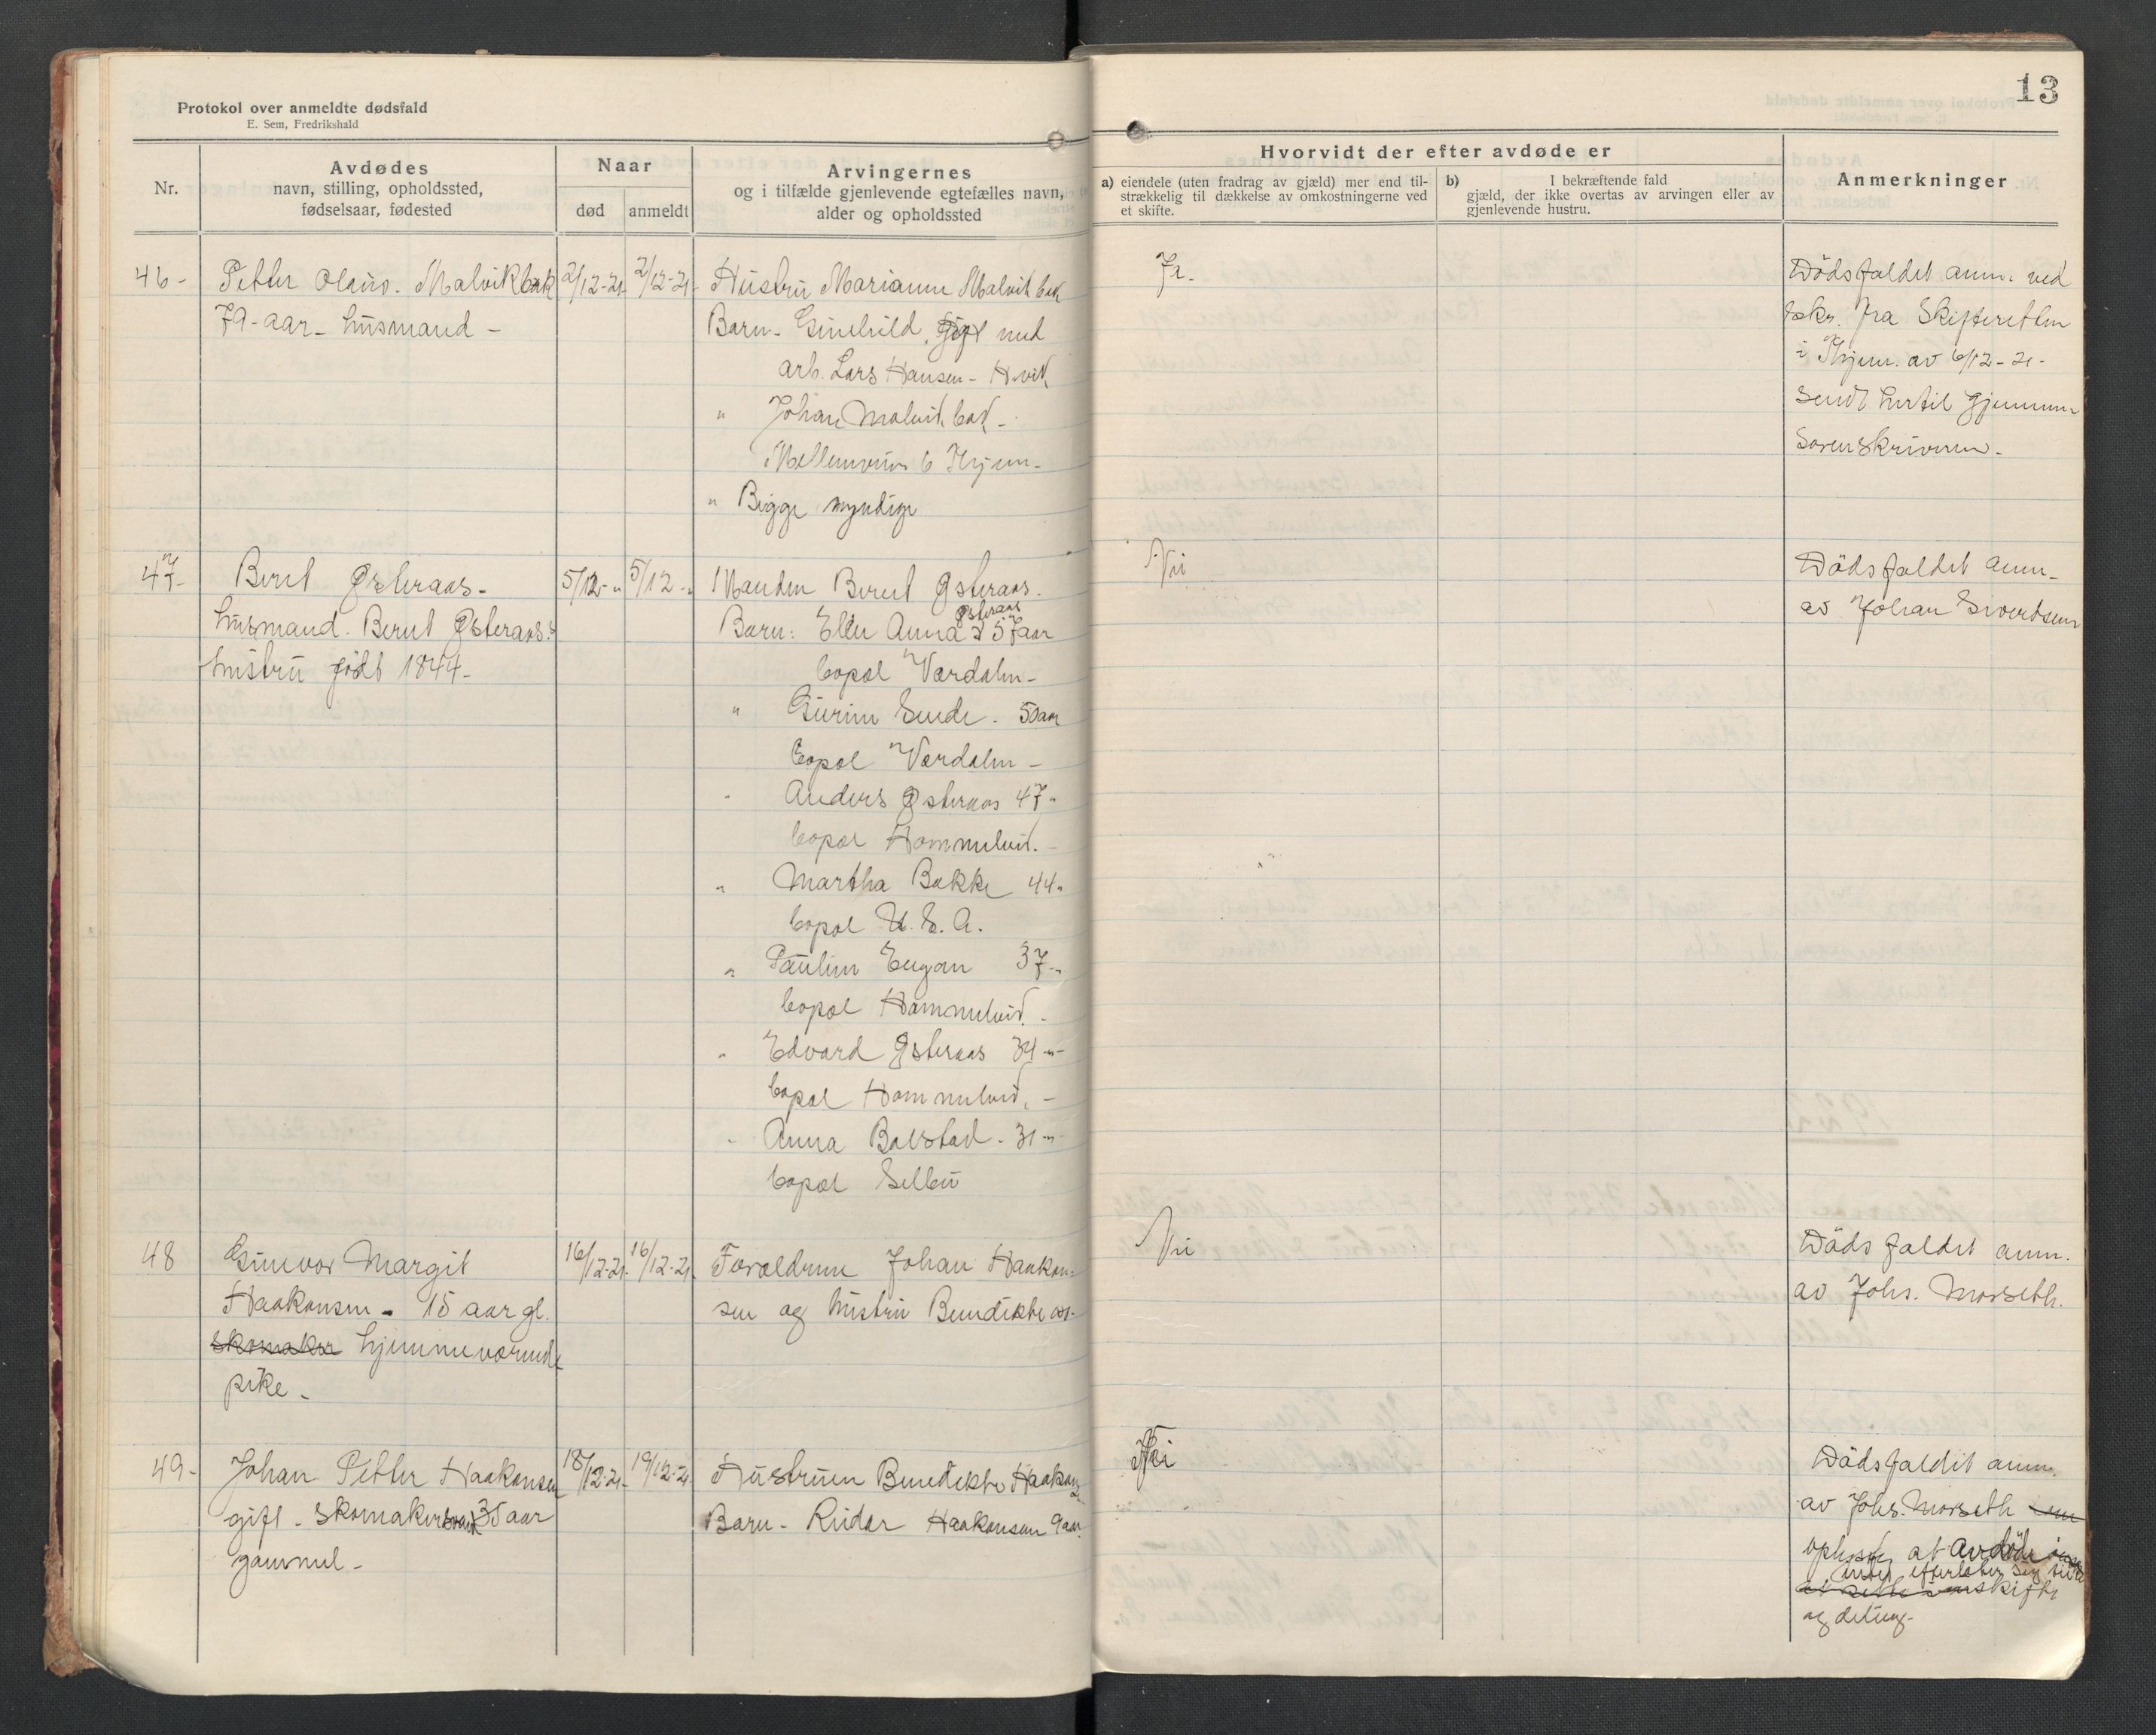 Protokol over anmeldte dødsfald
E. Sem, Fredrikshald
13
Nr.
Avdødes
navn, stilling, opholdssted,
fødselsaar, fødested
Naar
død
anmeldt
Arvingernes
og i tilfælde gjenlevende egtefælles navn,
alder og opholdssted
Hvorvidt der efter avdøde er
a) eiendele (uten fradrag av gjæld) mer end til-
strækkelig til dækkelse av omkostningerne ved
et skifte.
b) I bekræftende fald
gjæld, der ikke overtas av arvingen eller av
gjenlevende hustru.
Anmerkninger
46- Petter Olaus. Malvikbak 2/12-21- 2/12-21-
79-aar- husmand-
Hustru Marianne Malvikbak
Barn- Gunhild, gift med
arb. Lars Hansen- Hvik
" Johan Malvikbak-
6 Thjem-
" Begge myndige
Ja.
Dødsfaldet anm. ved
skr. fra Skifteretten
i Thjem. av 6/12-21-
sendt hertil gjennem
Sorenskriveren-
47- Beret Østeraas- 5/12-" 5/12-"
husmand. Bernt Østeraas's
hustru født 1844-
Manden Bernt Østeraas.
Østeraas
Barn: Ellen Anna 57 aar
bopæl Værdalen-
" Gurine Sende. 50 aar
bopæl Værdalen-
" Anders Østeraas 47"
bopæl Hommelvik.-
" Martha Bakke 44"
bopæl U.S.A.
" Pauline Eugan 37-"
bopæl Hommelvik-
" Edvard Østeraas 34-"-
bopæl Hommelvik,-
" Anna Balstad- 31-"-
bopæl Selbu
Nei
Dødsfaldet anm-
av Johan Sivertsen
48 Gunvor Margit 16/12-21- 16/12-21-
Haakonsen- 15 aar gl.
skomaker hjemmeværende
pike-
Foreldrene Johan Haakon-
sen og hustru Benedikte
Nei
Dødsfaldet anm.
av Johs. Morseth.
49- Johan Petter Haakonsen 18/12-21- 19/12-21
gift- skomakersvend 35 aar
gammel-
Hustruen Benedikte Haakonsen
Barn- Reidar Haakonsen 9 aar.
Nei
Dødsfaldet anm.
av Johs. Morseth
oplyste at avdøde
intet efterlater sig
skifte